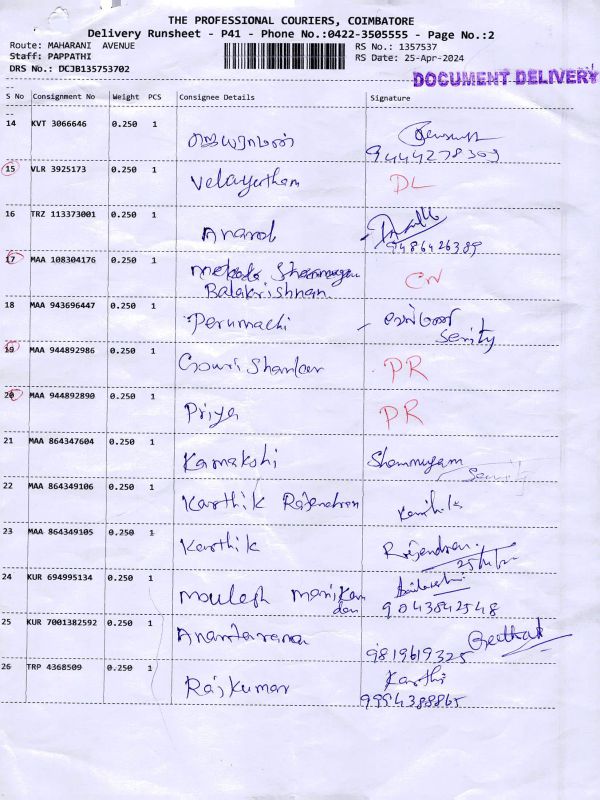 THE PROFESSIONAL COURIERS, COIMBATORE
Delivery Runsheet - P41 - Phone No.:0422-3505555 - Page No.:2
Route: MAHARANI AVENUE
Staff: PAPPATHI
DRS No.: DCJB135753702
RS No.: 1357537
RS Date: 25-Apr-2024
DOCUMENT DELIVERY
S No Consignment No Weight PCS Consignee Details Signature
14 KVT 3066646 0.250 1 ஜெயராமன்
9444278309
15 VLR 3925173 0.250 1 Velayutham DL
16 TRZ 113373001 0.250 1 Anand
9486426389
17 MAA 108304176 0.250 1 Shanmugam CN
Balakrishnan
18 MAA 943696447 0.250 1 Perumachi வேல்மணி
Serity
19 MAA 944892986 0.250 1 Gouri Shankar PR
20 MAA 944892890 0.250 1 Priya PR
21 MAA 864347604 0.250 1 Kamakshi Shanmugam
Serity
22 MAA 864349106 0.250 1 Karthik Rajendran Karthik
23 MAA 864349105 0.250 1 Karthik Rajendran.
24 KUR 694995134 0.250 1 Moulesh Manikan
dan 9043842548
25 KUR 7001382592 0.250 1 Anantarama
9819619325 Geetha
26 TRP 4368509 0.250 1 Rajkumar Karthi
9994388865